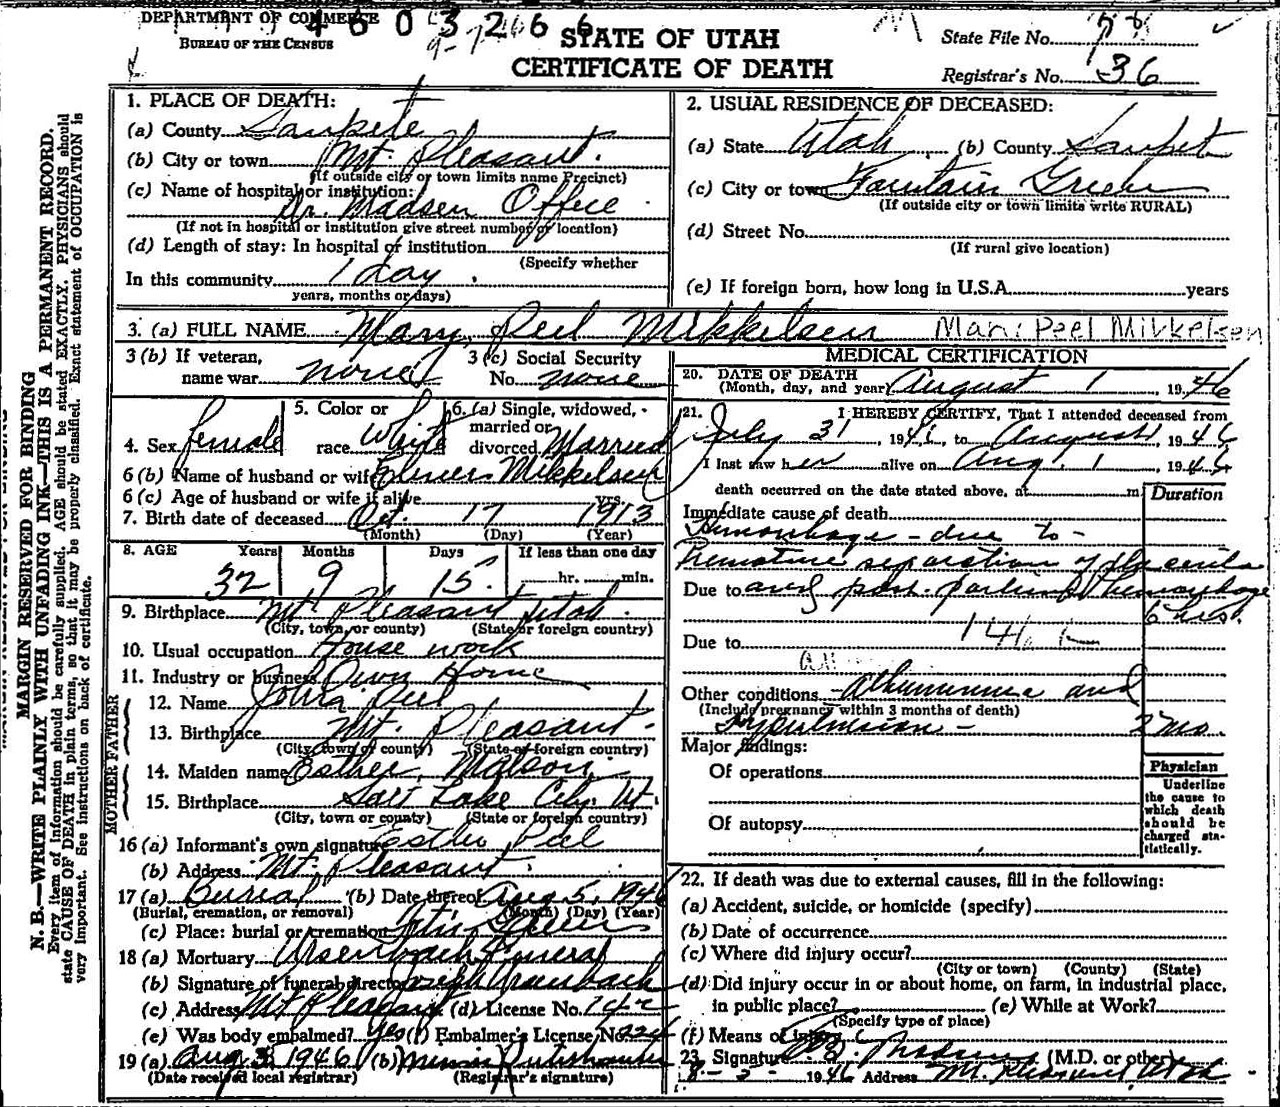 DEPARTMENT OF COMMERCE
BUREAU OF THE CENSUS
4603266
STATE OF UTAH
CERTIFICATE OF DEATH
State File No.
Registrar's No. 36
MARGIN RESERVED FOR BINDING
N. B.—WRITE PLAINLY WITH UNFADING INK—THIS IS A PERMANENT RECORD.
Every item of information should be carefully supplied. AGE should be stated EXACTLY. PHYSICIANS should
state CAUSE OF DEATH in plain terms, so that it may be properly classified. Exact statement of OCCUPATION is
very important. See instructions on back of certificate.
1. PLACE OF DEATH:
(a) County Sanpete
(b) City or town Mt. Pleasant.
(If outside city or town limits name Precinct)
(c) Name of hospital or institution:
Dr. Madsen Office
(If not in hospital or institution give street number or location)
(d) Length of stay: In hospital of institution
(Specify whether
In this community 1 day.
years, months or days)
2. USUAL RESIDENCE OF DECEASED:
(a) State Utah (b) County Sanpete
(c) City or town Fountain Green
(If outside city or town limits write RURAL)
(d) Street No.
(If rural give location)
(e) If foreign born, how long in U.S.A. years
3. (a) FULL NAME Mary Peel Mikkelsen Mary Peel Mikkelsen
3 (b) If veteran, name war none
3 (c) Social Security No. none
4. Sex female
5. Color or race White
6. (a) Single, widowed, married or divorced Married
6 (b) Name of husband or wife Elmer Mikkelsen
6 (c) Age of husband or wife if alive yrs.
7. Birth date of deceased Oct. 17 1913
(Month) (Day) (Year)
8. AGE Years Months Days If less than one day
32 9 15. hr. min.
9. Birthplace Mt Pleasant Utah.
(City, town, or county) (State or foreign country)
10. Usual occupation House work
11. Industry or business Own Home
FATHER
12. Name John Peel
13. Birthplace Mt. Pleasant
(City, town or county) (State or foreign country)
MOTHER
14. Maiden name Esther Matson
15. Birthplace Salt Lake City. Ut.
(City, town or county) (State or foreign country)
16 (a) Informant's own signature Esther Peel
(b) Address Mt. Pleasant.
17 (a) Burial (b) Date thereof Aug 5, 1946
(Burial, cremation, or removal) (Month) (Day) (Year)
(c) Place: burial or cremation
18 (a) Mortuary Ursenbach Funeral
(b) Signature of funeral director Joseph Ursenbach
(c) Address Mt Pleasant (d) License No.
(e) Was body embalmed? Yes (f) Embalmer's License No.
19 (a) Aug 3, 1946 (b)
(Date received local registrar) (Registrar's signature)
MEDICAL CERTIFICATION
20. DATE OF DEATH
(Month, day, and year) August 1, 1946
21. I HEREBY CERTIFY, That I attended deceased from
July 31, 1946, to August 1, 1946
I last saw her alive on Aug. 1 1946
death occurred on the date stated above, at m
Duration
Immediate cause of death
Hemorrhage - due to -
Premature separation of placenta
Due to and post-partum Hemorrhage
6 hrs.
Due to
Other conditions Albuminuria and
(Include pregnancy within 3 months of death)
Hypertension - 2 mo.
Major findings:
Of operations
Of autopsy
Physician
Underline
the cause to
which death
should be
charged sta-
tistically.
22. If death was due to external causes, fill in the following:
(a) Accident, suicide, or homicide (specify)
(b) Date of occurrence
(c) Where did injury occur?
(City or town) (County) (State)
(d) Did injury occur in or about home, on farm, in industrial place,
in public place? (e) While at Work?
(Specify type of place)
(f) Means of injury
23. Signature Madsen (M.D. or other)
1946 Address Mt. Pleasant Utah